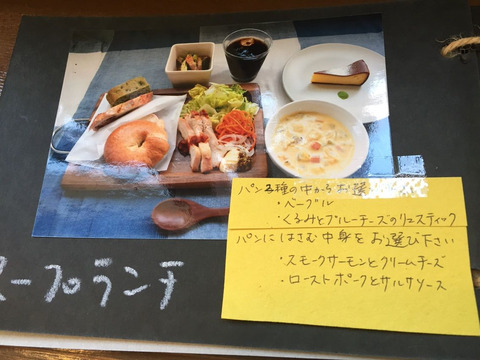 パン3種の中からお選
・ベーグル
・くるみとブルーチーズのリュスティック
パンにはさむ中身をお選び下さい
・スモークサーモンとクリームチーズ
・ローストポークとサルサソース
スープランチ